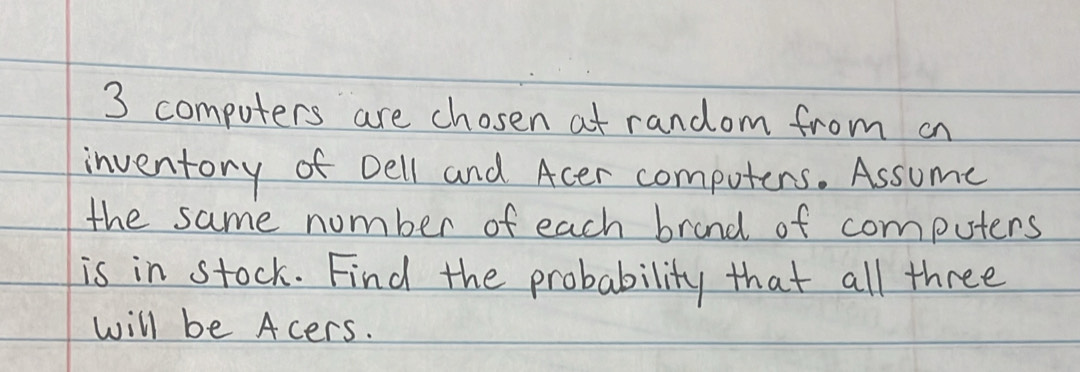 3 computers are chosen at random from an
inventory of Dell and Acer computers. Assume
the same number of each brand of computers
is in stock. Find the probability that all three
will be Acers.